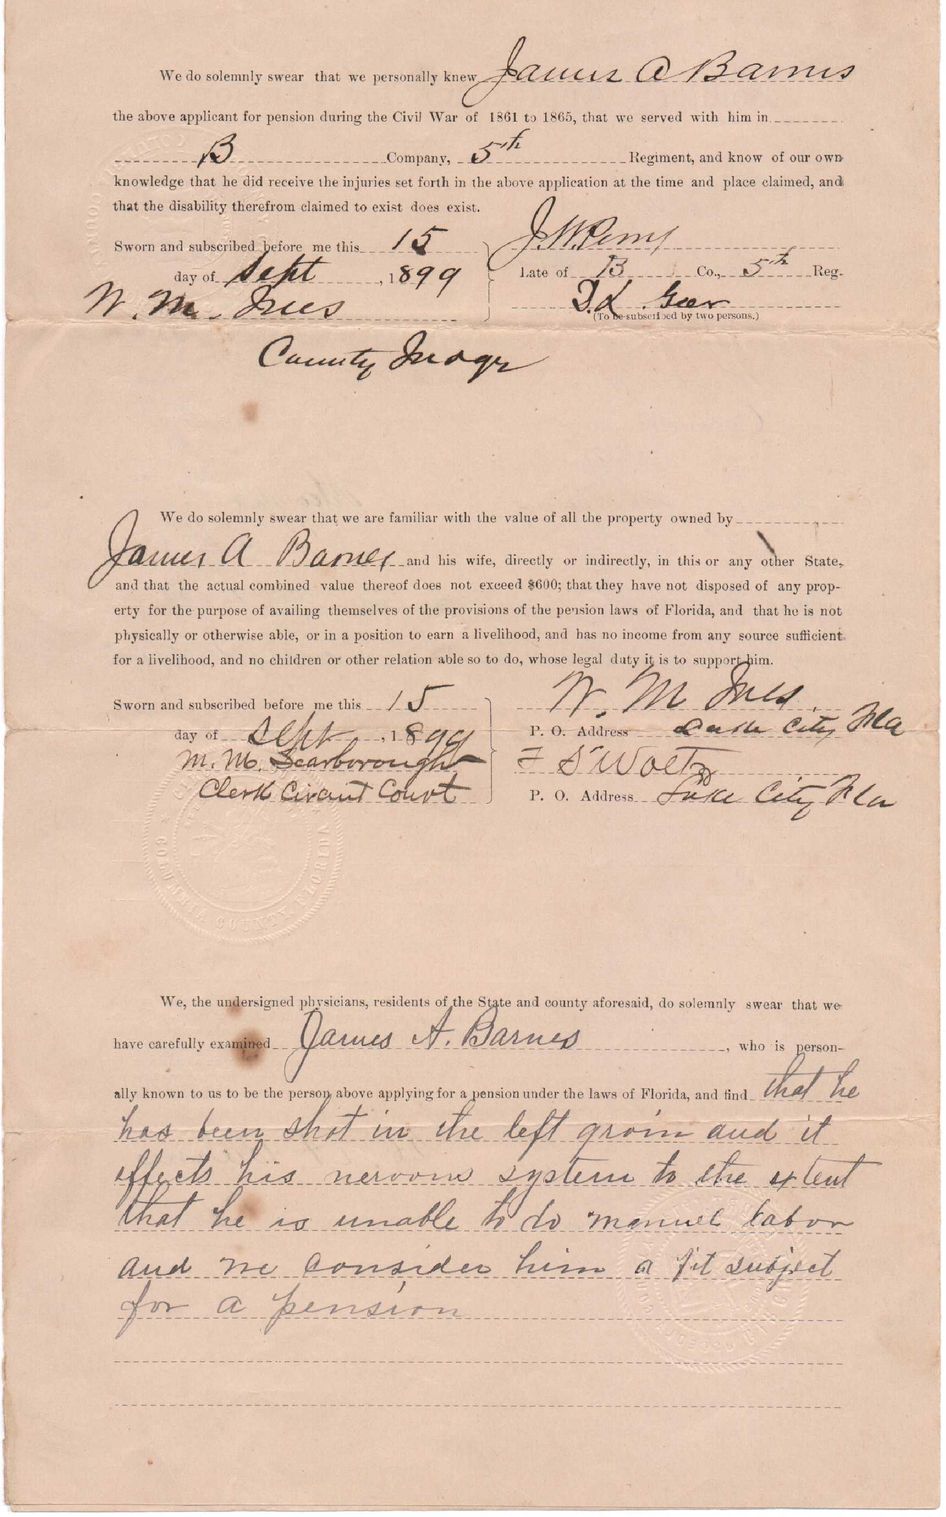 We do solemnly swear that we personally knew James A Barnes
the above applicant for pension during the Civil War of 1861 to 1865, that we served with him in
B Company, 5th Regiment, and know of our own
knowledge that he did receive the injuries set forth in the above application at the time and place claimed, and
that the disability therefrom claimed to exist does exist.
Sworn and subscribed before me this 15
day of Sept, 1899
W. M. Ives
County Judge
J. W. Perry
Late of B Co., 5th Reg.
(To be subscribed by two persons.)
We do solemnly swear that we are familiar with the value of all the property owned by
James A Barnes and his wife, directly or indirectly, in this or any other State,
and that the actual combined value thereof does not exceed $600; that they have not disposed of any prop-
erty for the purpose of availing themselves of the provisions of the pension laws of Florida, and that he is not
physically or otherwise able, or in a position to earn a livelihood, and has no income from any source sufficient
for a livelihood, and no children or other relation able so to do, whose legal duty it is to support him.
Sworn and subscribed before me this 15
day of Sept, 1899
M. M. Scarborough
Clerk Circuit Court
W. M Ives
P. O. Address Lake City Fla
P. O. Address Lake City Fla
COLUMBIA COUNTY, FLORIDA
We, the undersigned physicians, residents of the State and county aforesaid, do solemnly swear that we
have carefully examined James A. Barnes, who is person-
ally known to us to be the person above applying for a pension under the laws of Florida, and find that he
has been shot in the left groin and it
effects his nervous system to the extent
that he is unable to do manuel labor
and we consider him a fit subject
for a pension